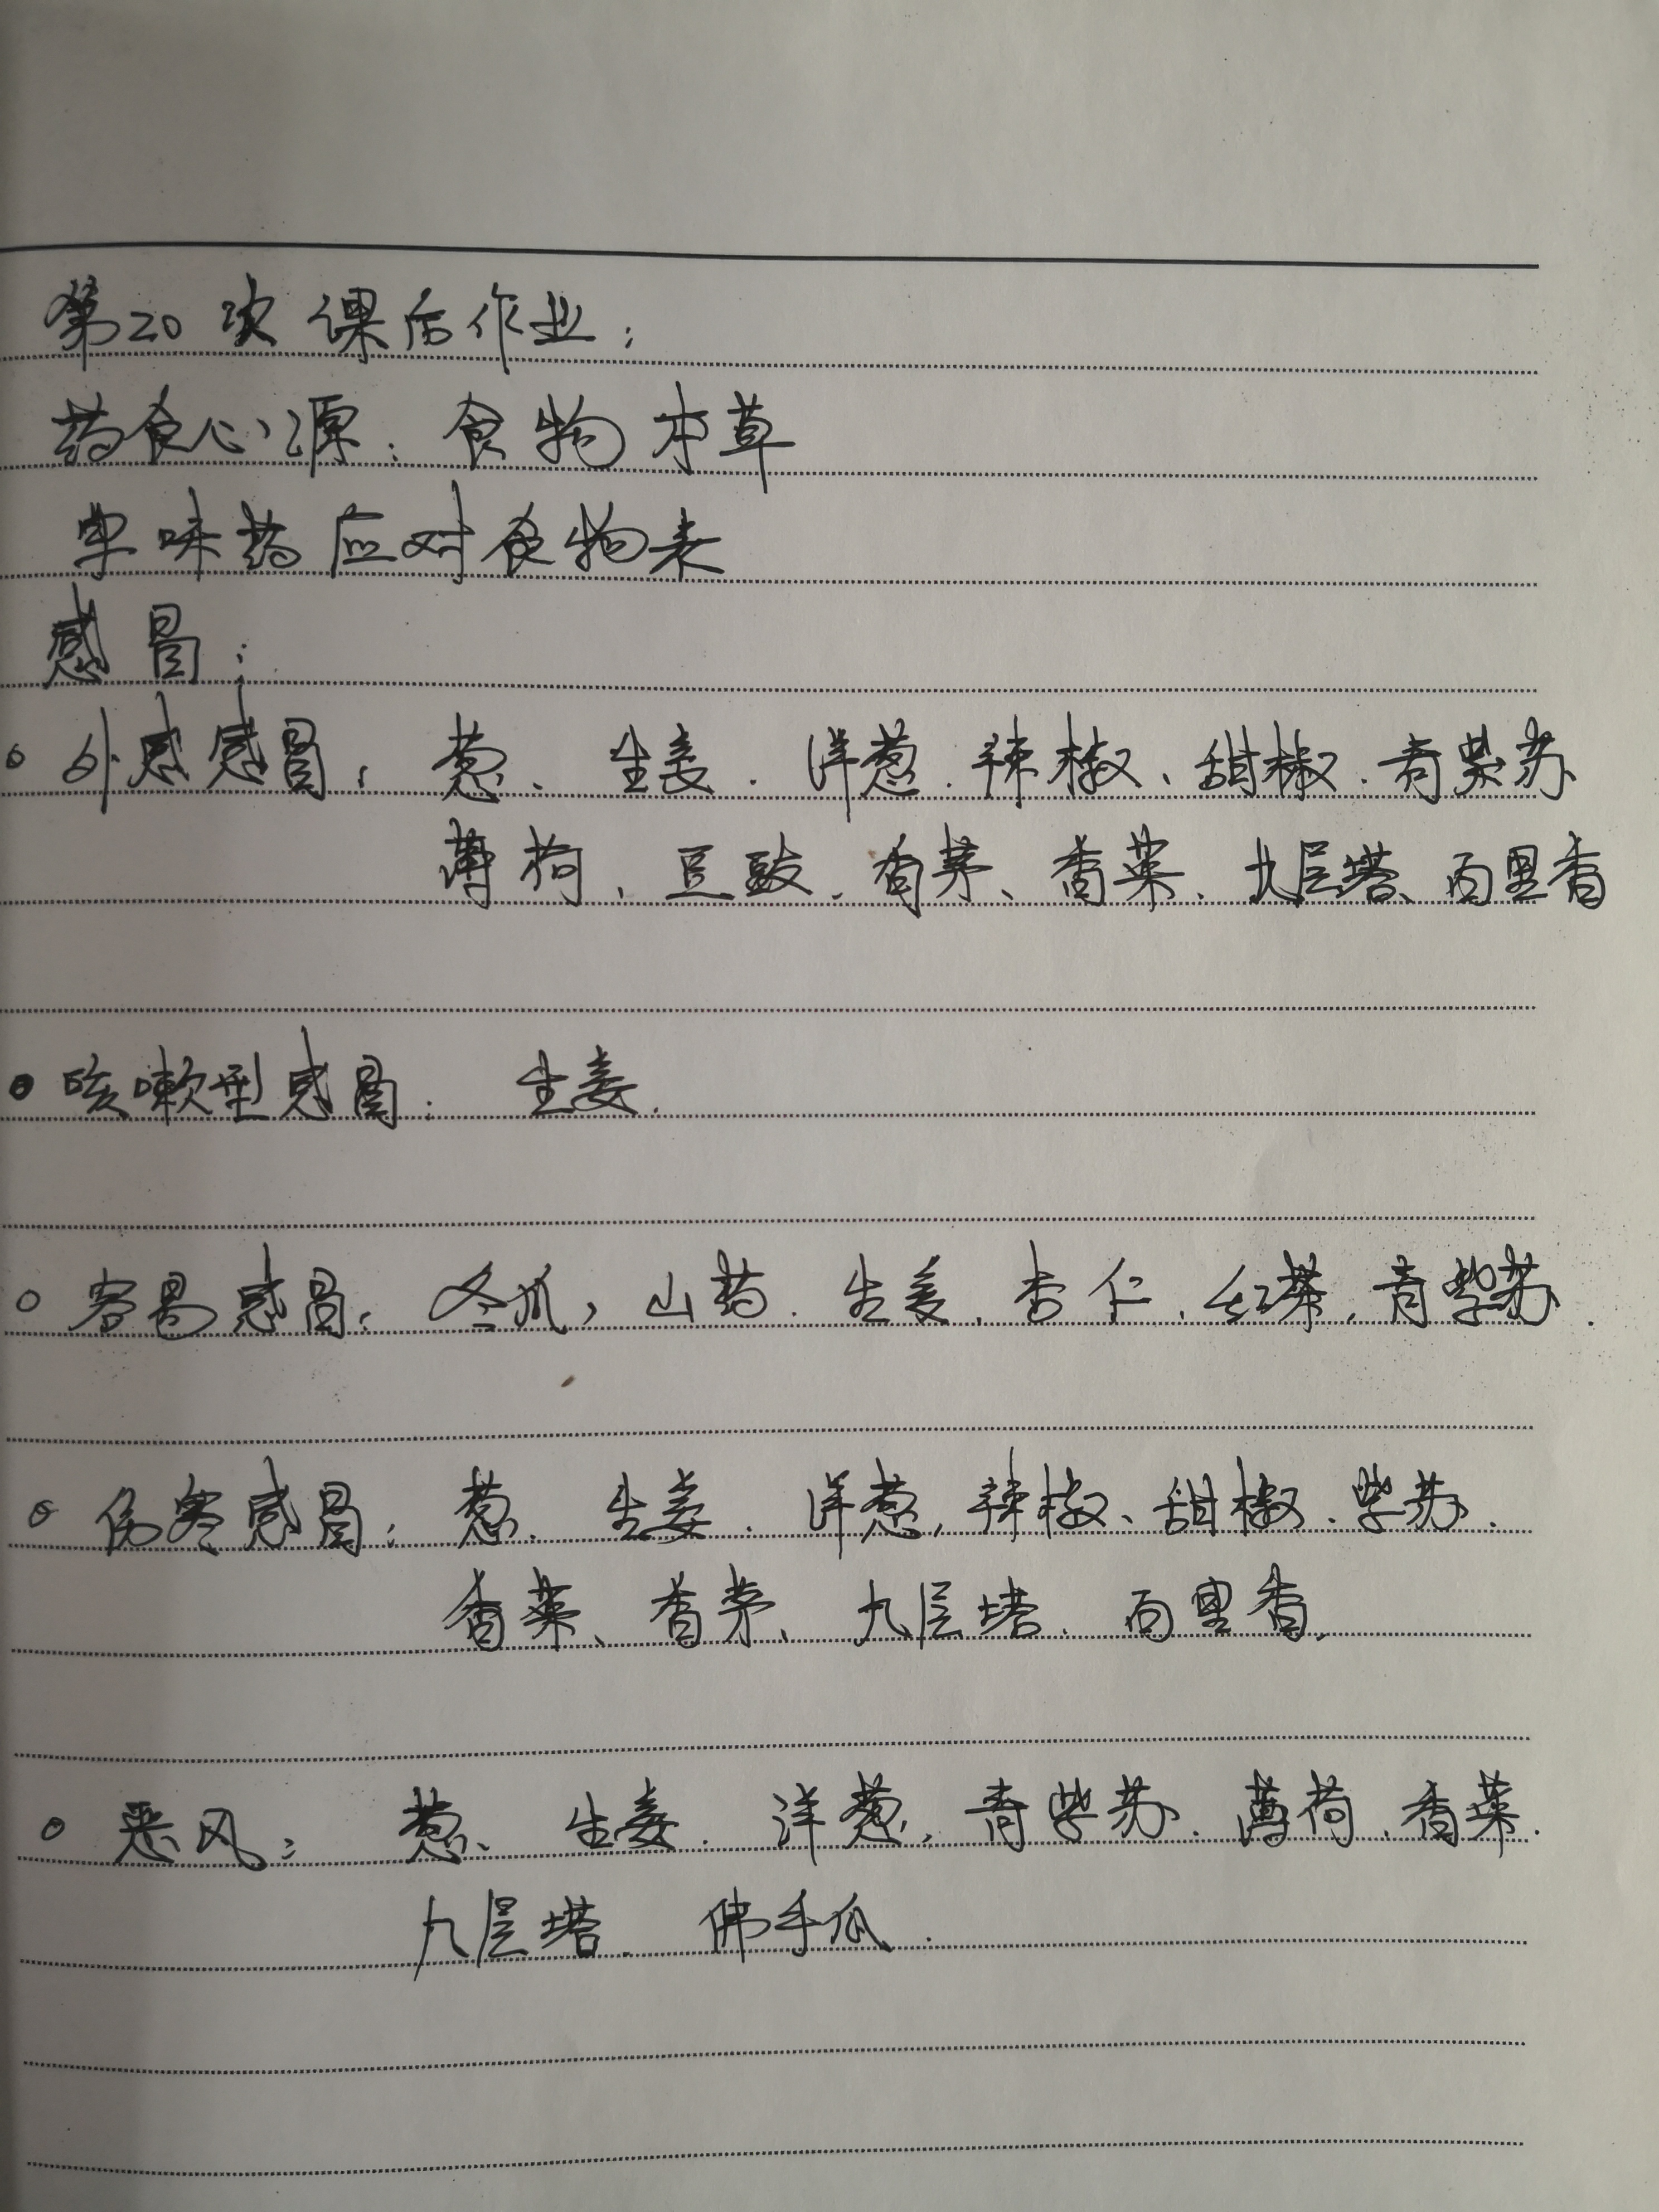 第20次课后作业：
药食心源：食物本草
辛味药应对食物表
感冒：
外感感冒：葱、生姜、洋葱、辣椒、甜椒、青紫苏
薄荷、豆豉、香茅、香菜、九层塔、百里香
咳嗽型感冒：生姜.
容易感冒：冬瓜，山药、生姜、杏仁、红枣，青紫苏.
伤寒感冒：葱、生姜、洋葱，辣椒、甜椒、紫苏.
香菜、香茅、九层塔、百里香.
恶风：葱、生姜、洋葱，青紫苏、薄荷、香菜.
九层塔、佛手瓜.